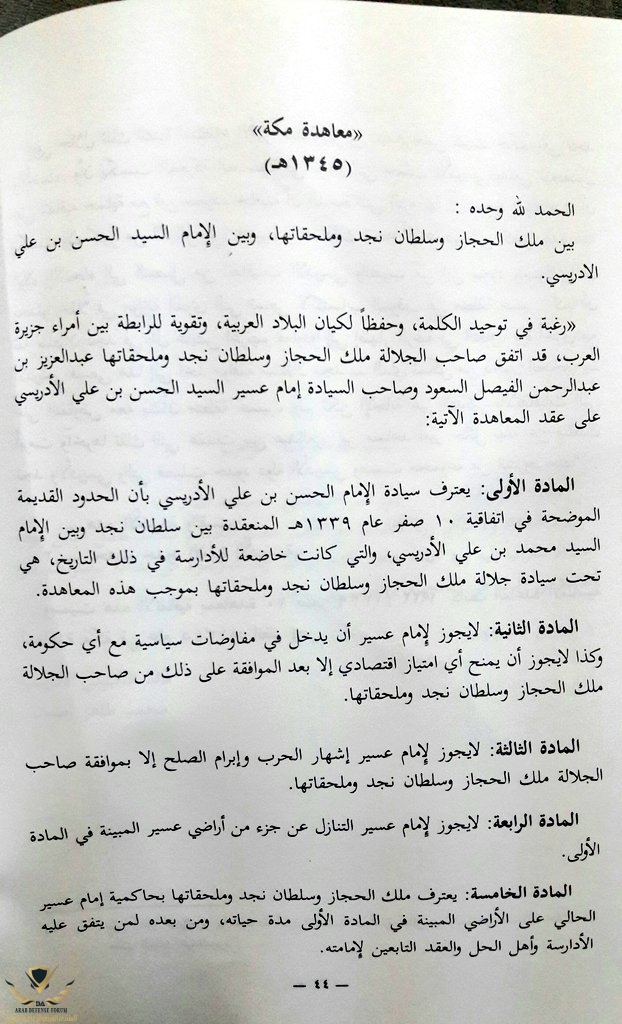 «معاهدة مكة»
(١٣٤٥هـ)
الحمد لله وحده :
بين ملك الحجاز وسلطان نجد وملحقاتها، وبين الإمام السيد الحسن بن علي
الادريسي.
«رغبة في توحيد الكلمة، وحفظاً لكيان البلاد العربية، وتقوية للرابطة بين أمراء جزيرة
العرب، قد اتفق صاحب الجلالة ملك الحجاز وسلطان نجد وملحقاتها عبدالعزيز بن
عبدالرحمن الفيصل السعود وصاحب السيادة إمام عسير السيد الحسن بن علي الأدريسي
على عقد المعاهدة الآتية:
المادة الأولى: يعترف سيادة الإمام الحسن بن علي الأدريسي بأن الحدود القديمة
الموضحة في اتفاقية ١٠ صفر عام ١٣٣٩هـ المنعقدة بين سلطان نجد وبين الإمام
السيد محمد بن علي الأدريسي، والتي كانت خاضعة للأدارسة في ذلك التاريخ، هي
تحت سيادة جلالة ملك الحجاز وسلطان نجد وملحقاتها بموجب هذه المعاهدة.
المادة الثانية: لايجوز لإمام عسير أن يدخل في مفاوضات سياسية مع أي حكومة،
وكذا لايجوز أن يمنح أي امتياز اقتصادي إلا بعد الموافقة على ذلك من صاحب الجلالة
ملك الحجاز وسلطان نجد وملحقاتها.
المادة الثالثة: لايجوز لإمام عسير إشهار الحرب وإبرام الصلح إلا بموافقة صاحب
الجلالة ملك الحجاز وسلطان نجد وملحقاتها.
المادة الرابعة: لايجوز لإمام عسير التنازل عن جزء من أراضي عسير المبينة في المادة
الأولى.
المادة الخامسة: يعترف ملك الحجاز وسلطان نجد وملحقاتها بحاكمية إمام عسير
الحالي على الأراضي المبينة في المادة الأولى مدة حياته، ومن بعده لمن يتفق عليه
الأدارسة وأهل الحل والعقد التابعين لإمامته.
— ٤٤ —
DA
ARAB DEFENSE FORUM